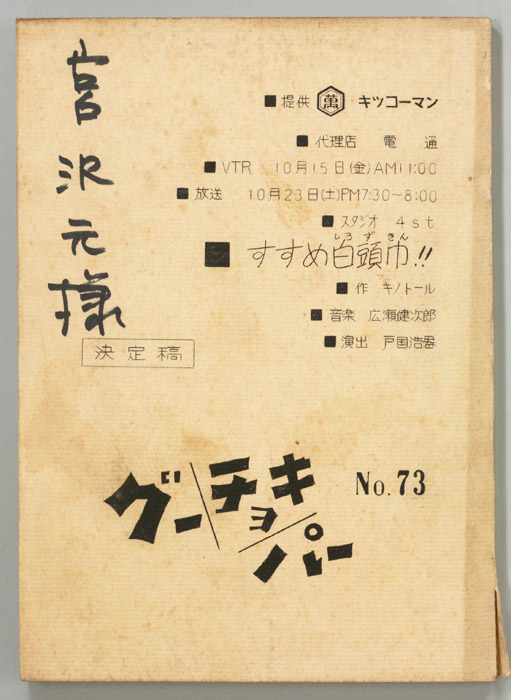 宮沢元様
■提供 萬 キッコーマン
■代理店 電通
■VTR 10月15日(金)AM11:00
■放送 10月23日(土)PM7:30~8:00
■スタジオ 4st
しろずきん
■すすめ白頭巾!!
■作 キノトール
■音楽 広瀬健次郎
■演出 戸国浩器
決定稿
グー/チョキ/パー
No.73